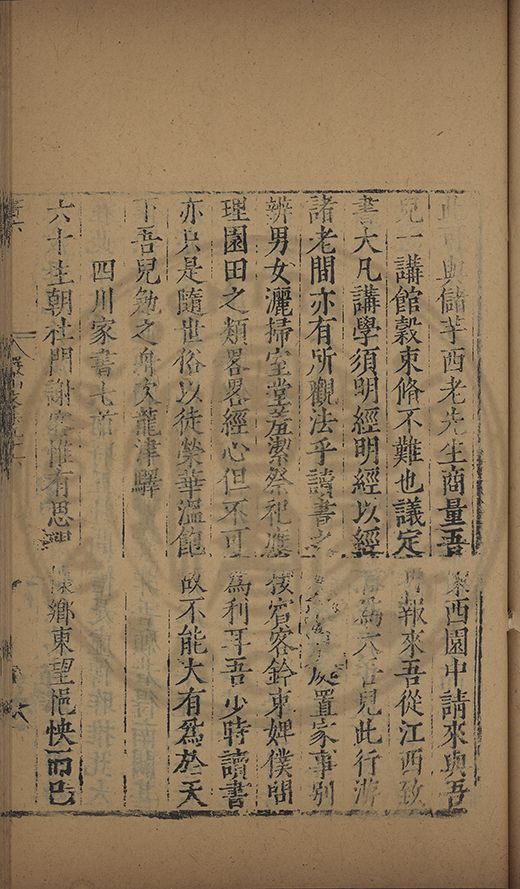 此可與儲芋西老先生商量吾
西園中請來與吾
兒一講館穀束脩不難也議定
報來吾從江西致
書大凡講學須明經明經以經
為六吾兒此行游
諸老間亦有所觀法乎讀書之
處置家事別
辨男女灑掃室堂羞潔祭祀應
接賓客鈐束婢僕間
理園田之類畧畧經心但不可
為利耳吾少時讀書
亦只是隨世俗以徒榮華溫飽
故不能大有為於天
下吾兒勉之舟次龍津驛
四川家書七首
六十生朝杜門謝客惟有思親
懷鄉東望悒怏而已